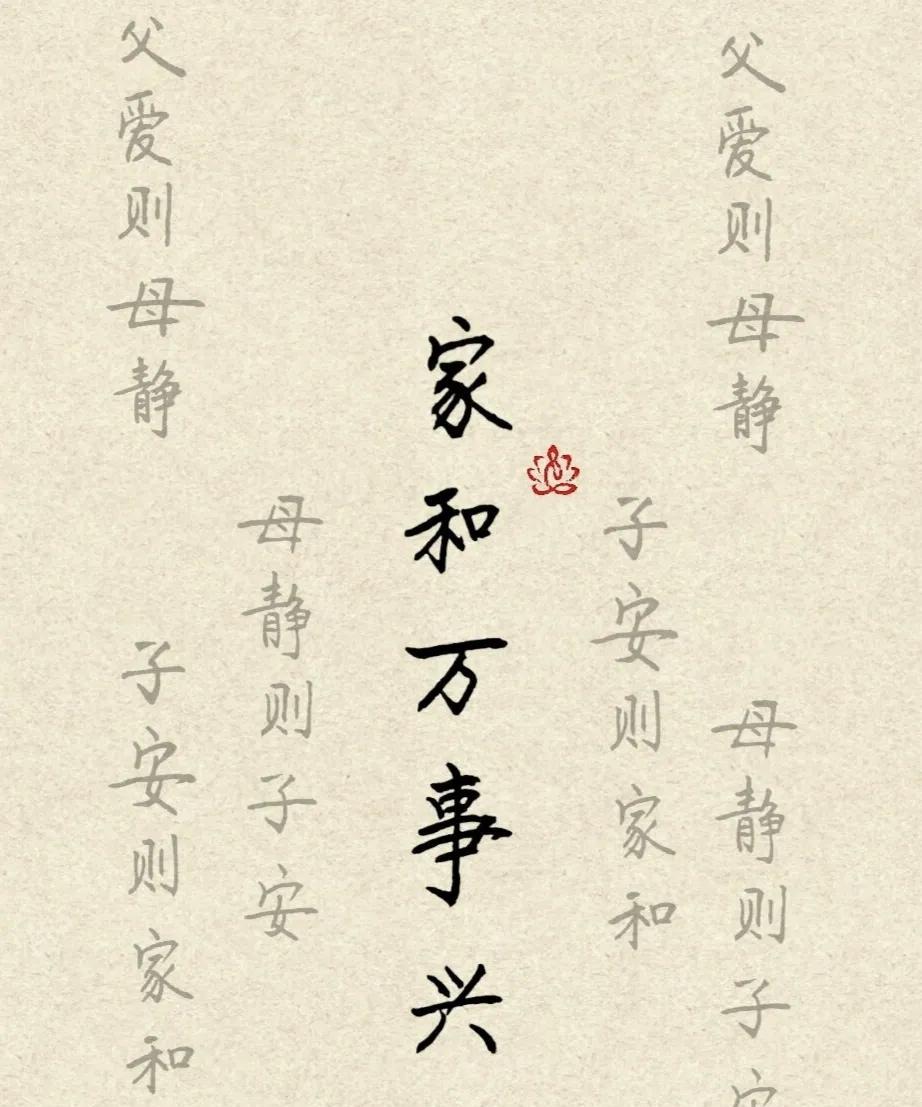 父爱则母静
母静则子安
子安则家和
家和万事兴
父爱则母静
子安则家和
母静则子安